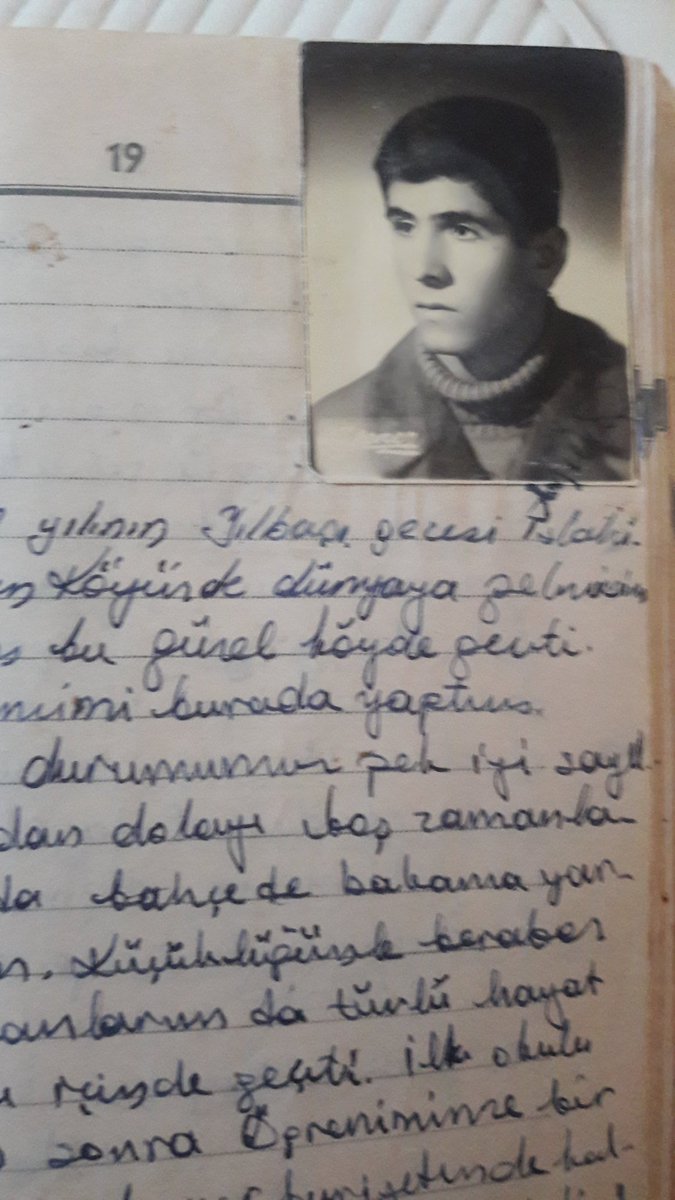 19
yılının Yılbaşı gecesi İslahi-
Köyünde dünyaya gelmişim
bu güzel köyde geçti.
mimi burada yaptım.
durumumuz pek iyi sayıl-
dan dolayı boş zamanla-
da bahçede babama yar-
Küçüklüğümle beraber
da türlü hayat
içinde geçti. ilk okulu
sonra Öğrenimime bir